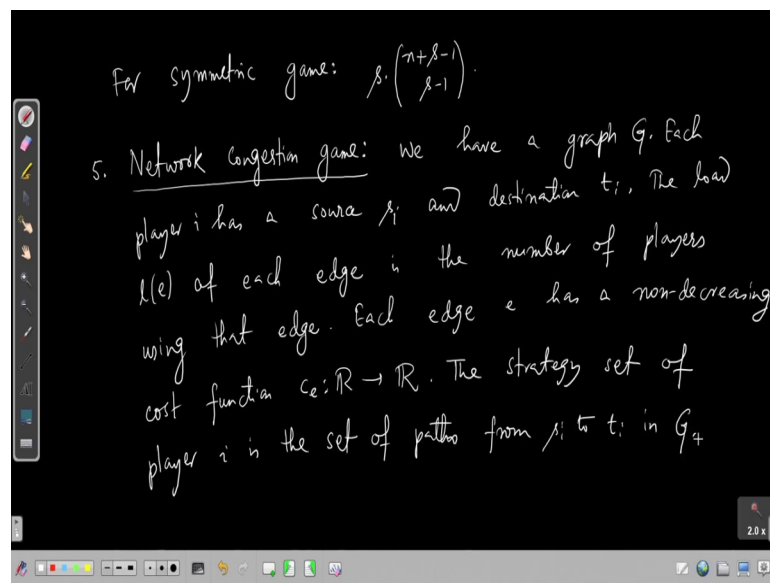 For symmetric game: s. (n+s-1 s-1).
5. Network Congestion game: We have a graph G. Each
player i has a source si and destination ti. The load
l(e) of each edge is the number of players
using that edge. Each edge e has a non-decreasing
cost function ce: ℝ → ℝ. The strategy set of
player i is the set of paths from si to ti in G.
2.0 x